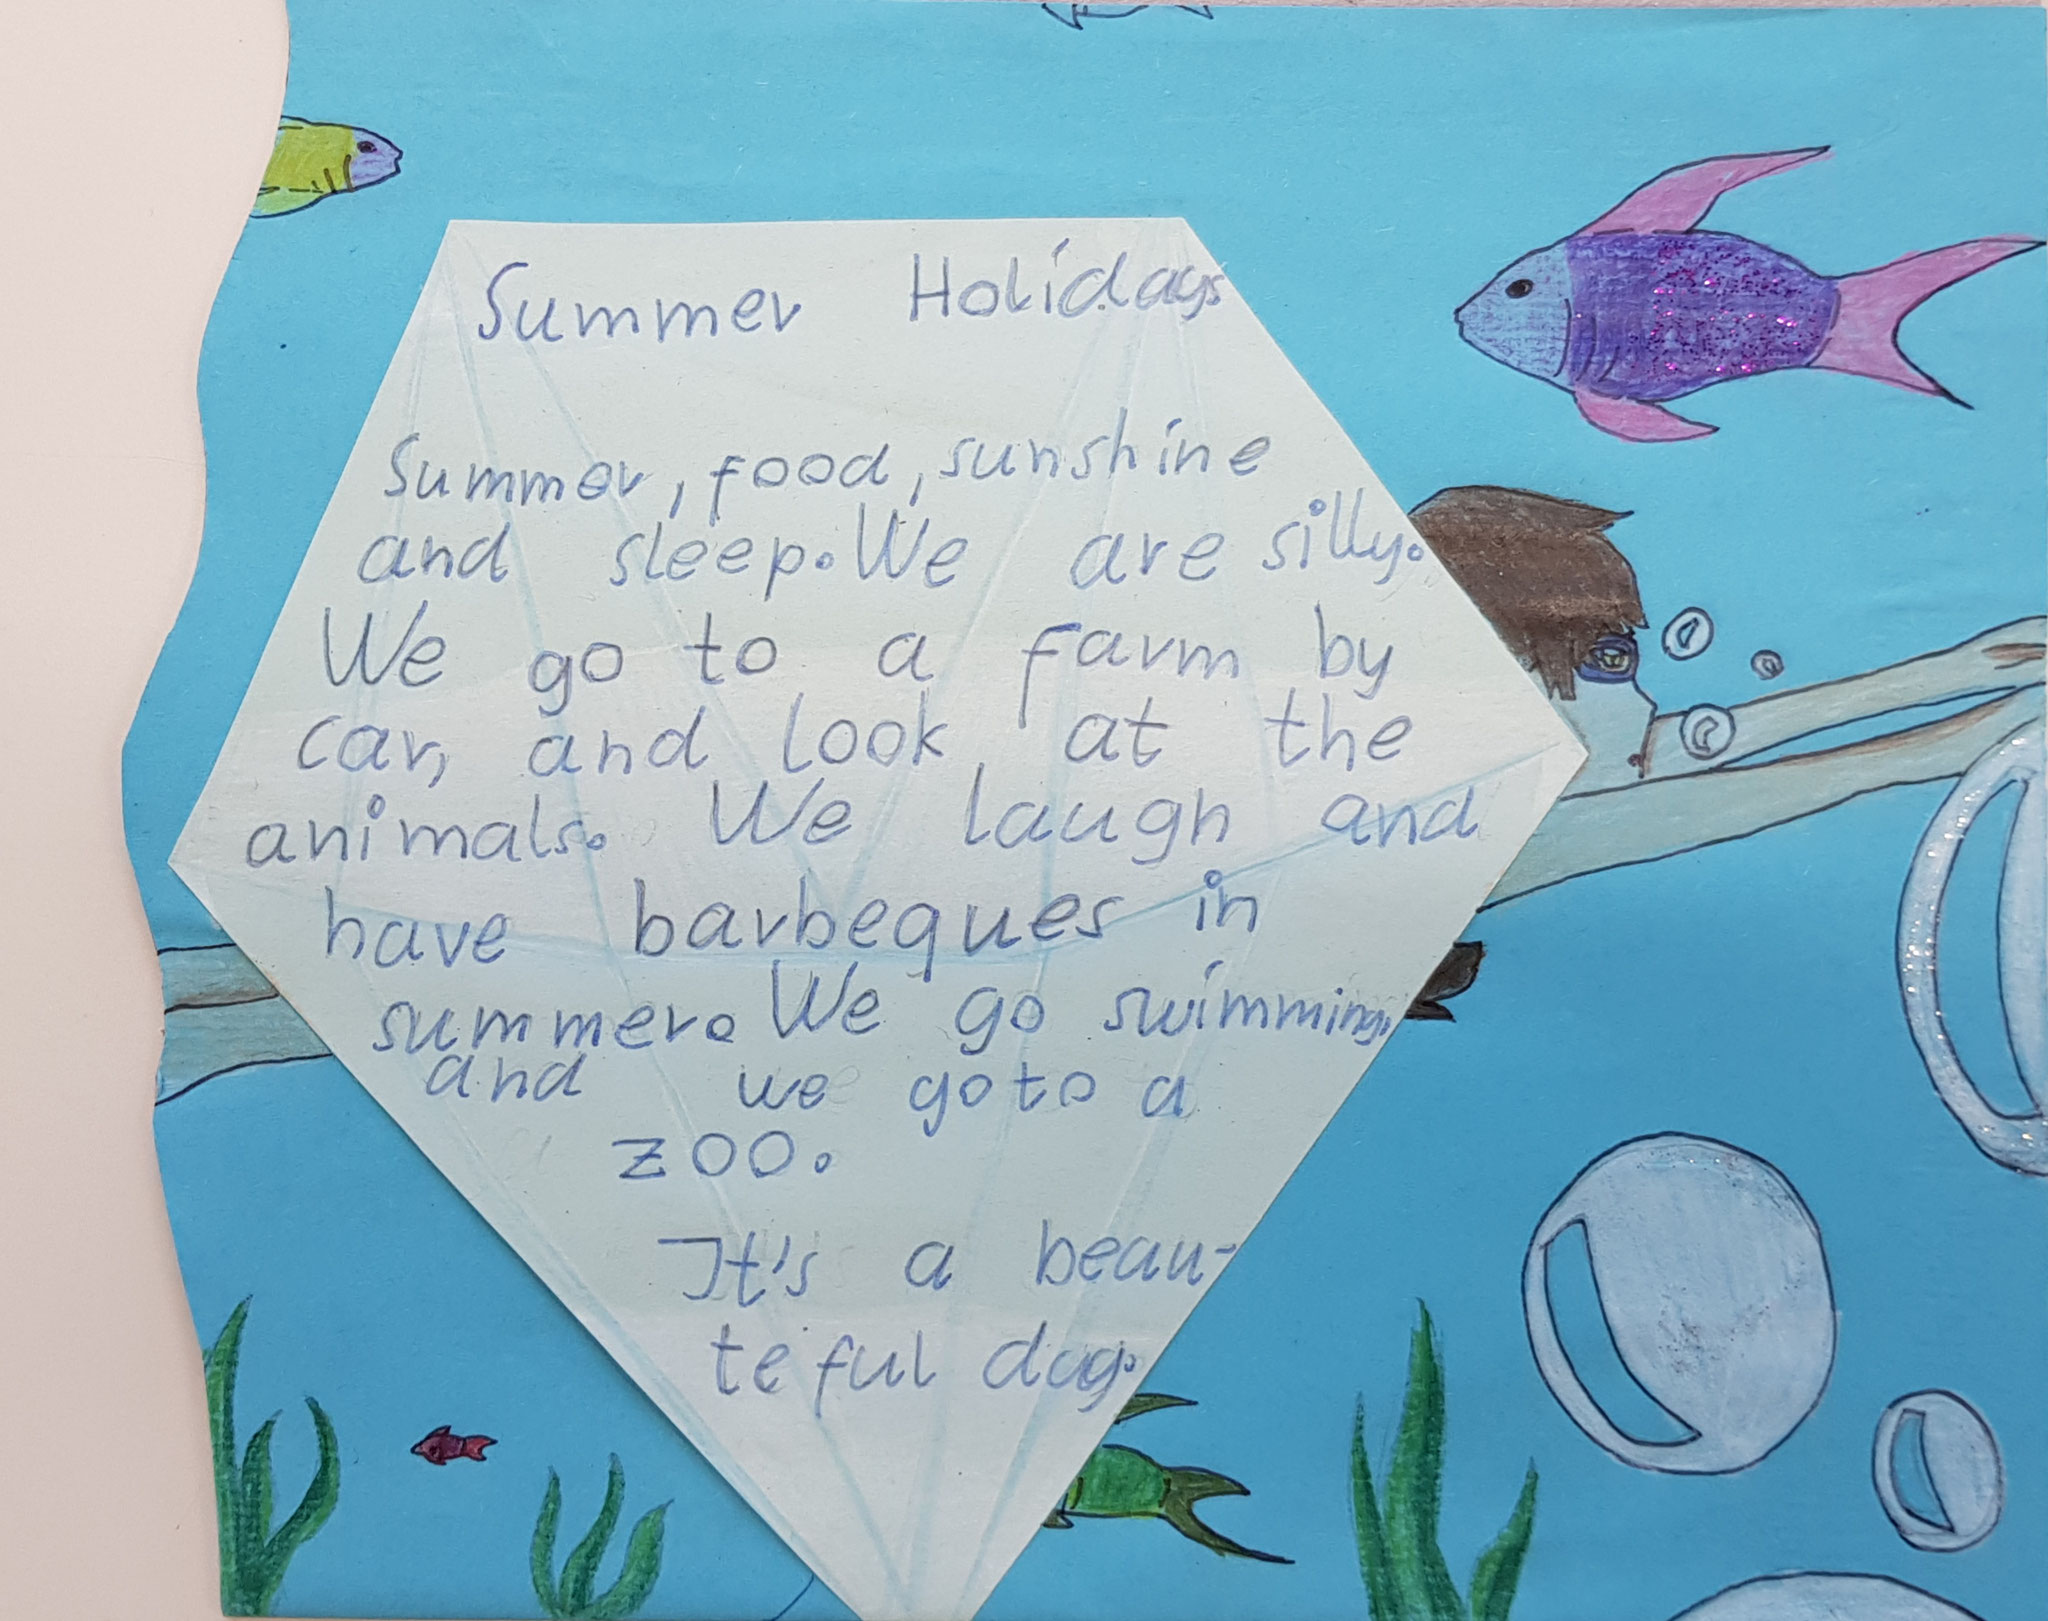 Summer Holidays
Summer, food, sunshine
and sleep. We are silly.
We go to a farm by
car, and look at the
animals. We laugh and
have barbeques in
summer. We go swimming,
and we go to a
zoo.
It's a beau-
teful day.